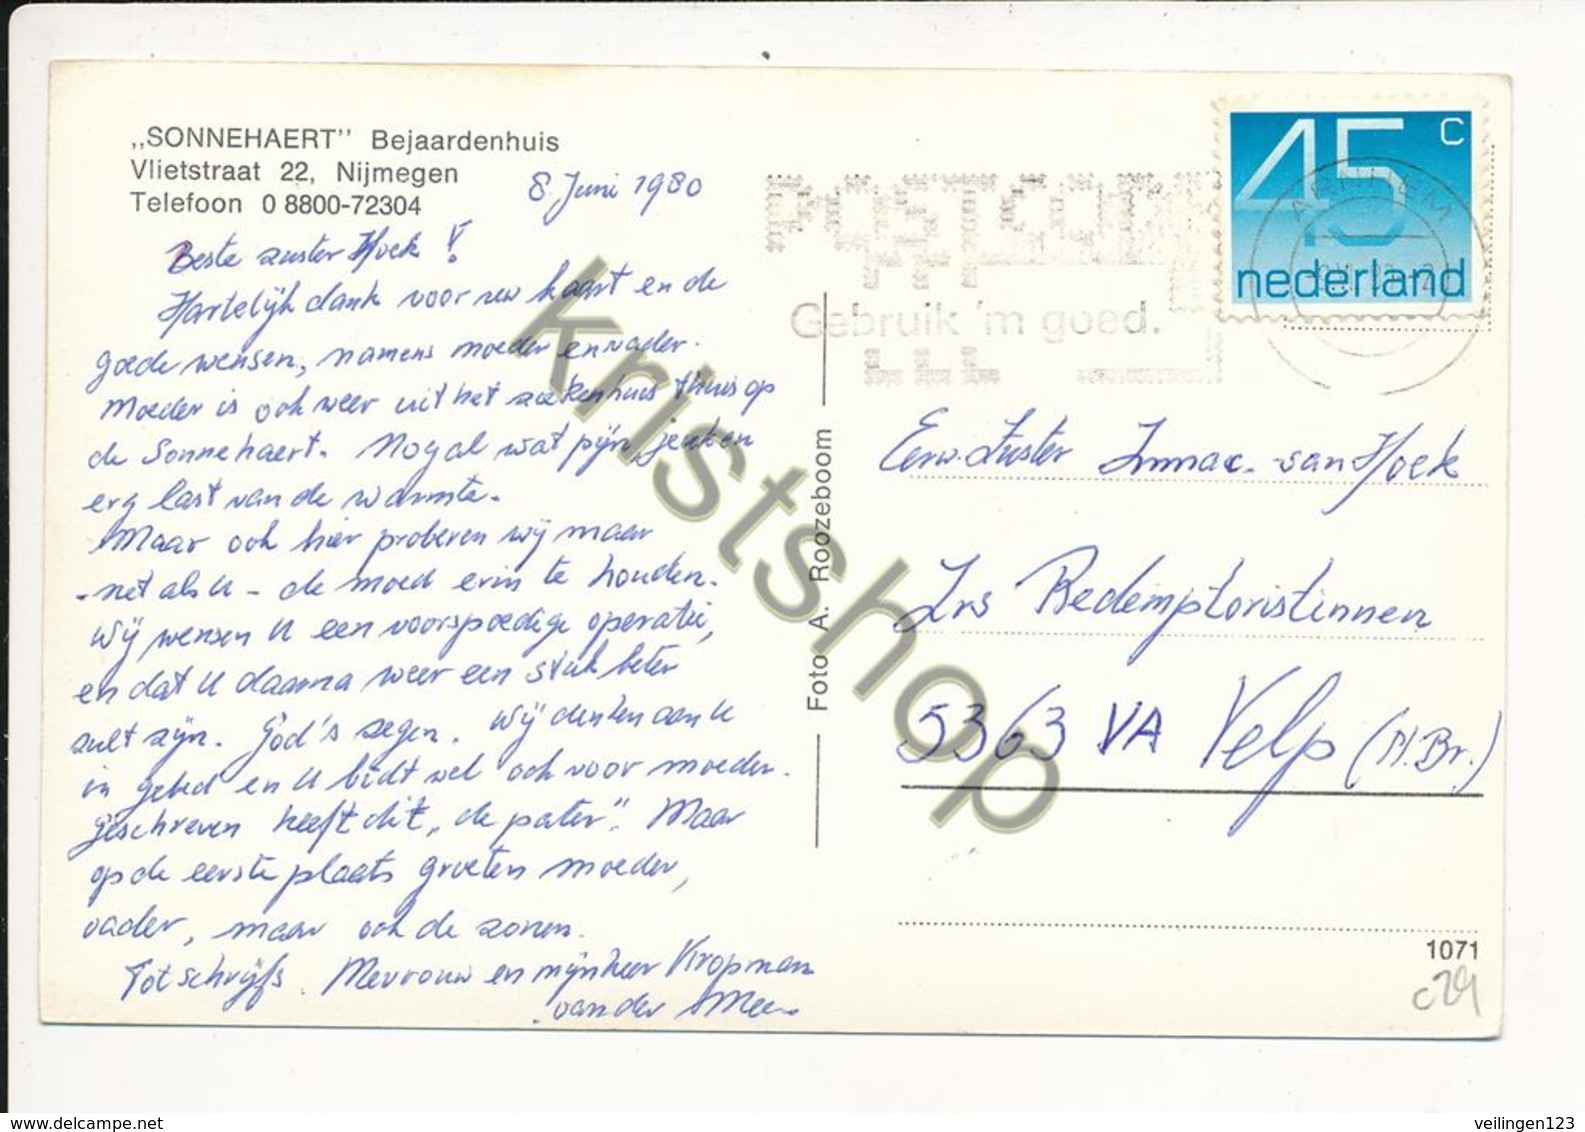 „SONNEHAERT" Bejaardenhuis
Vlietstraat 22, Nijmegen
Telefoon 0 8800-72304
8 Juni 1980
Beste zuster Hoek !
Hartelijk dank voor uw kaart en de
goede wensen, namens moeder en vader.
Moeder is ook weer uit het ziekenhuis thuis op
de Sonnehaert. Nogal wat pijn, jeuk en
erg last van de warmte.
Maar ook hier proberen wij maar
- net als U - de moed erin te houden.
Wij wensen U een voorspoedige operatie,
en dat U daarna weer een stuk beter
zult zijn. God's zegen. Wij denken aan U
in gebed en U bidt wel ook voor moeder.
Geschreven heeft dit „de pater". Maar
op de eerste plaats groeten moeder,
vader, maar ook de zonen.
Tot schrijfs. Mevrouw en mijnheer Kropman
van der Meer
Foto A. Roozeboom
POSTCODE
Gebruik 'm goed.
45 c
nederland
ARNHEM
Eerw. Zuster Immac. van Hoek
Zrs Redemptoristinnen
5363 VA Velp (N.Br.)
1071
c24
kristshop
dutchcardhouse@outlook.com
veilingen123